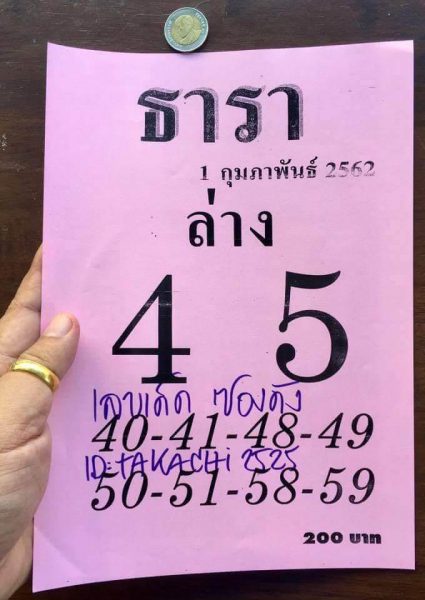 ธารา
1 กุมภาพันธ์ 2562
ล่าง
4 5
เลขเด็ด ซองดัง
40-41-48-49
ID:TAKACHi 2525
50-51-58-59
200 บาท